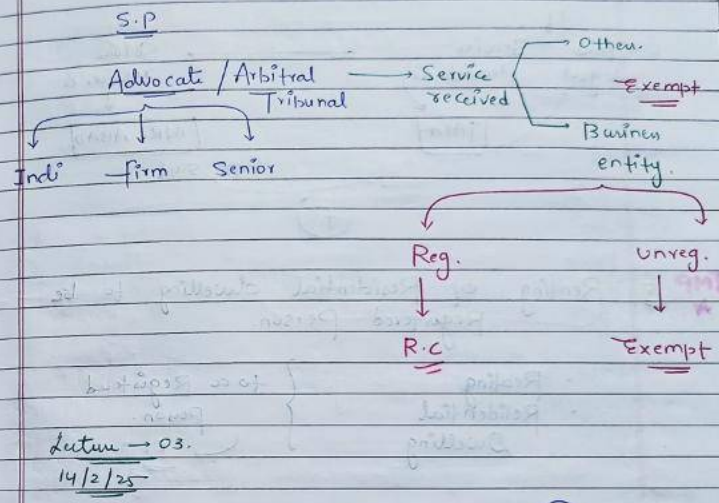 S.P
Advocate / Arbitral Tribunal → Service received
Other.
Exempt
Business entity.
Indi firm Senior
Reg. unreg.
R.C Exempt
Lecture → 03.
14/2/25